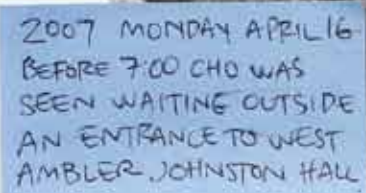 2007 MONDAY APRIL 16
BEFORE 7:00 CHO WAS
SEEN WAITING OUTSIDE
AN ENTRANCE TO WEST
AMBLER JOHNSTON HALL